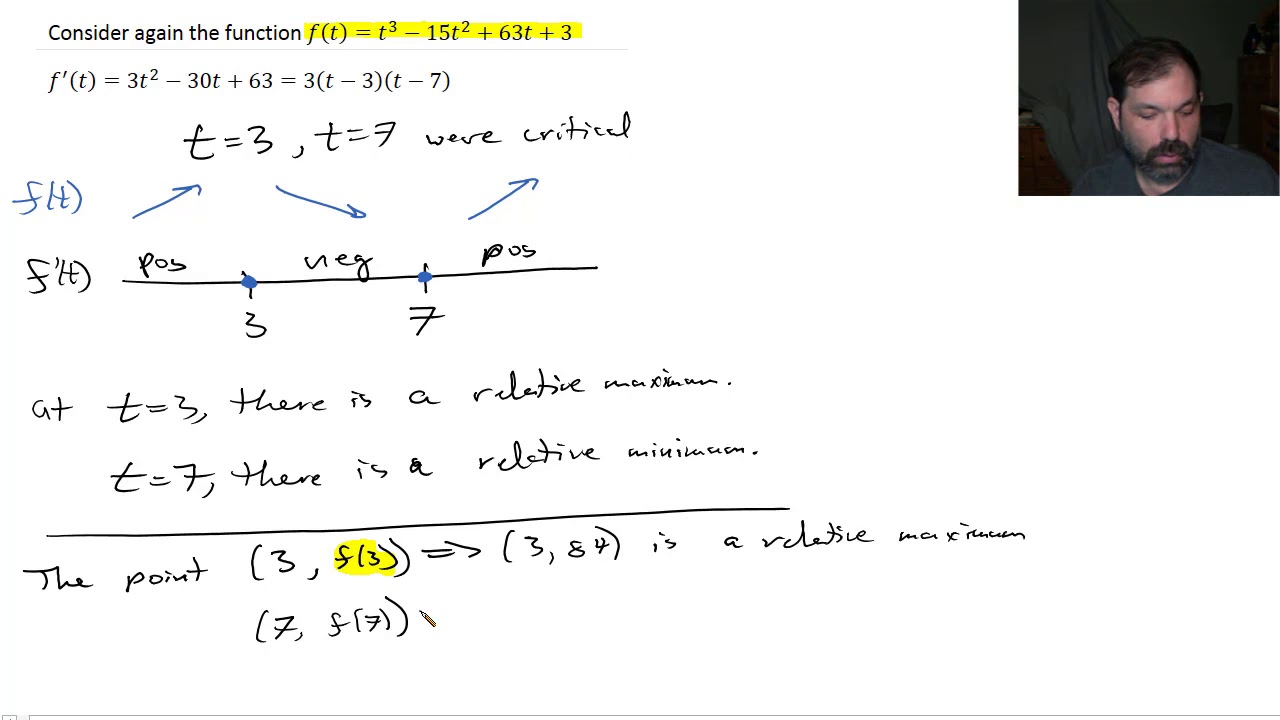 Consider again the function f(t) = t³ − 15t² + 63t + 3
f′(t) = 3t² − 30t + 63 = 3(t − 3)(t − 7)
t=3, t=7 were critical
f(t)
f'(t) pos neg pos
3 7
at t=3, there is a relative maximum.
t=7, there is a relative minimum.
The point (3, f(3)) => (3, 84) is a relative maximum
(7, f(7))